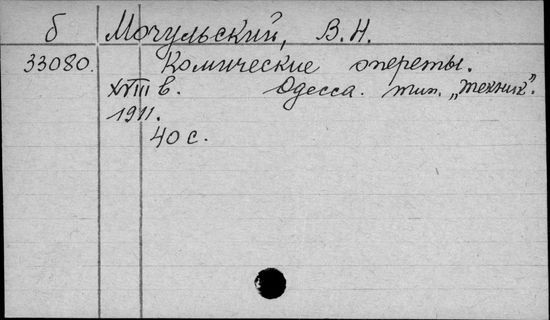 б Мочульский, В.Н.
33080. Комические опереты.
XVIII в. Одесса. тип. „Техник".
1911.
40 с.